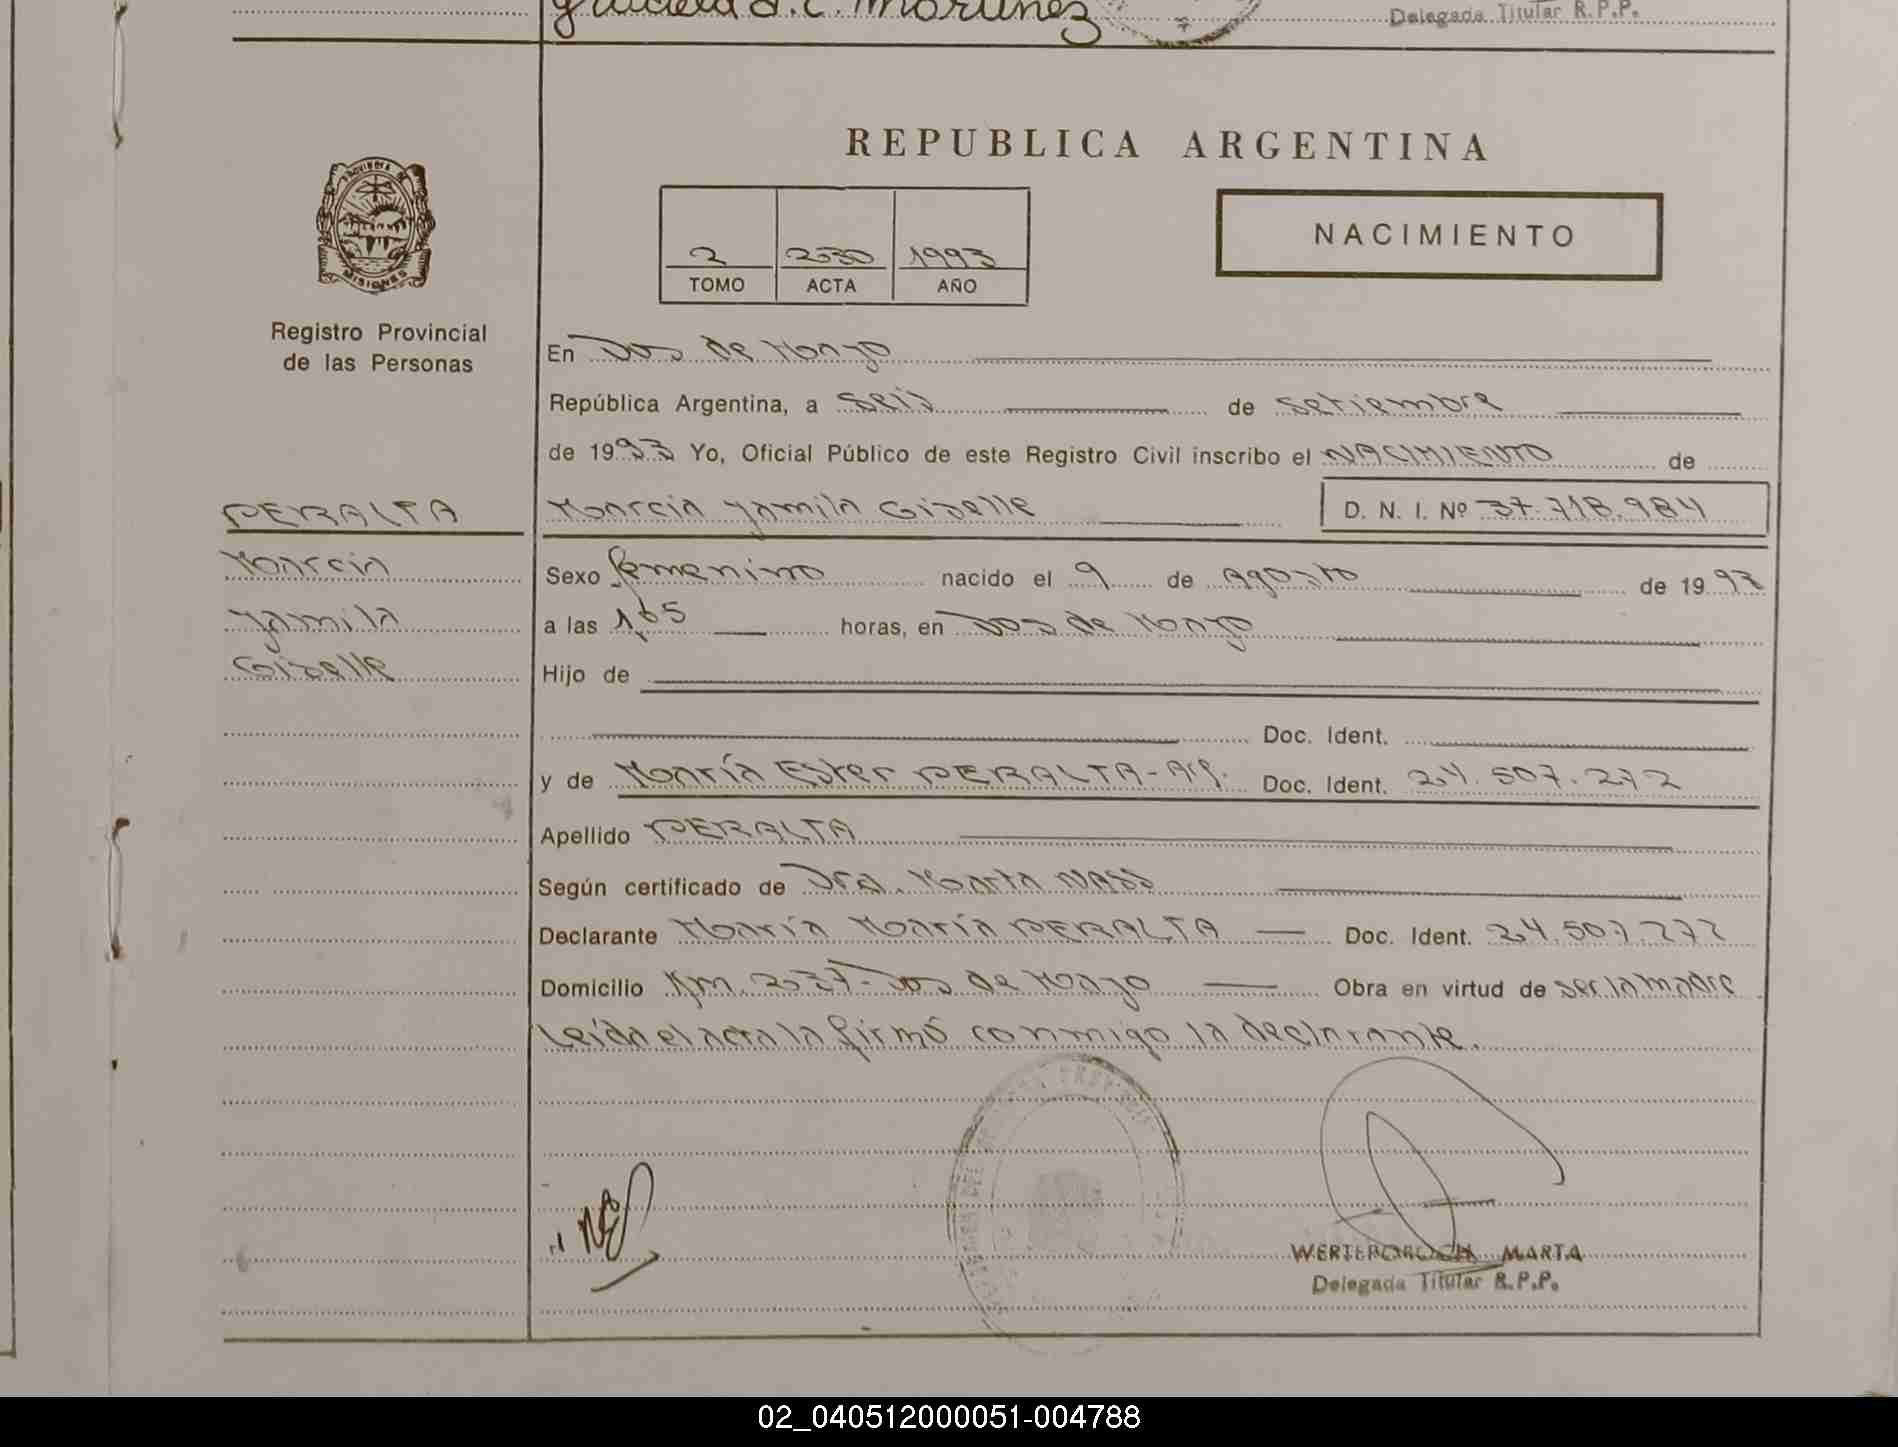 Graciela D.C. Martinez
Delegada Titular R.P.P.
REPUBLICA ARGENTINA
NACIMIENTO
2 230 1993
TOMO ACTA AÑO
PROVINCIA DE
MISIONES
Registro Provincial
de las Personas
En Dos de Mayo
República Argentina, a seis de setiembre
de 1993 Yo, Oficial Público de este Registro Civil inscribo el NACIMIENTO de
PERALTA
Marcia Yamila Giselle D. N. I. Nº 37.718.984
Marcia
Yamila
Giselle
Sexo femenino nacido el 9 de agosto de 1993
a las horas, en Dos de Mayo
Hijo de
Doc. Ident.
y de María Ester PERALTA-Arg. Doc. Ident. 24.507.272
Apellido PERALTA
Según certificado de Dra. Marta NASS
Declarante María María PERALTA Doc. Ident. 24.507.272
Domicilio Km. 237-Dos de Mayo Obra en virtud de ser la madre
Leida el acta la firmó conmigo la declarante.
WERTEPOROCH MARTA
Delegada Titular R.P.P.
02_040512000051-004788